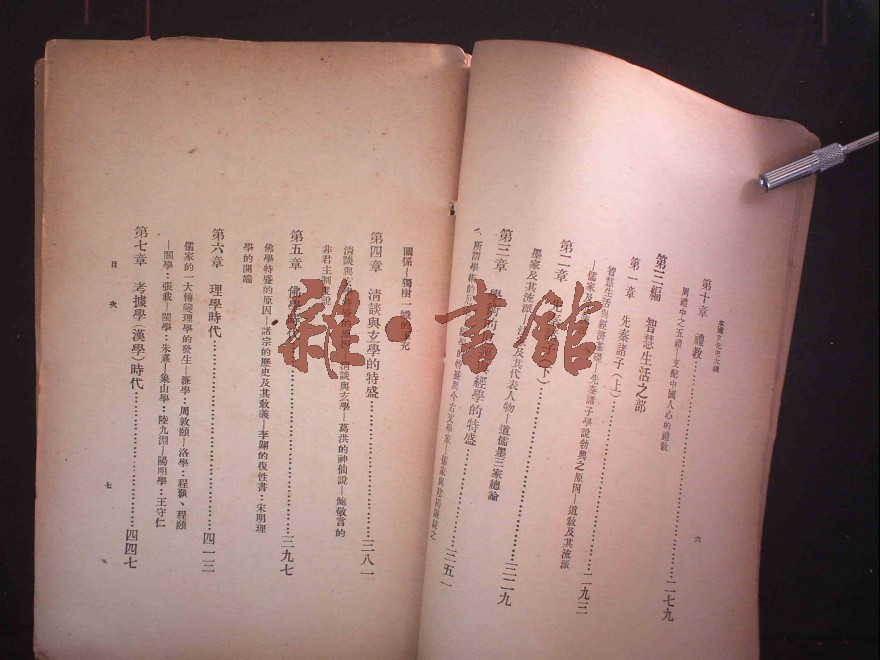 本國文化史大綱
第十章 禮教……二七九
周禮中之五禮—支配中國人心的禮教
第三編 智慧生活之部
第一章 先秦諸子(上)……二九三
智慧生活與經濟基礎—先秦諸子學說勃興之原因—道教及其流派
—儒家及
第二章 先秦
……三二九
墨家及其流派
及其代表人物—道儒墨三家總論
第三章
經學的特盛……三五一
所謂學術的
經學的特盛與今古文學家—儒家與陰陽
六
關係—獨樹一幟的
第四章 清談與玄學的特盛……三八一
清談與玄
清談與玄學—葛洪的神仙說—鮑敬言的
非君主制度說
第五章 佛學時代……三九七
佛學特盛的原因—諸宗的歷史及其教義—李翺的復性書:宋明理
學的開端
第六章 理學時代……四一三
儒家的一大轉變理學的發生—濂學:周敦頤—洛學:程顥、程頤
—關學:張載—閩學:朱熹—象山學:陸九淵—陽明學:王守仁
第七章 考據學(漢學)時代……四四七
目次
七
雜·書館